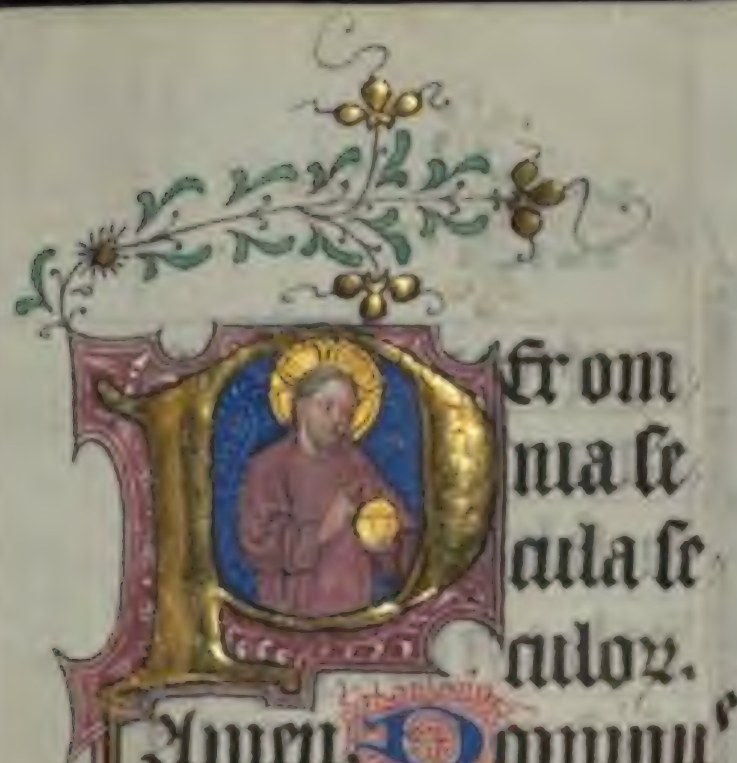 PEr om
nia se
cula se
culoꝝ.
Amen. Dominuˢ